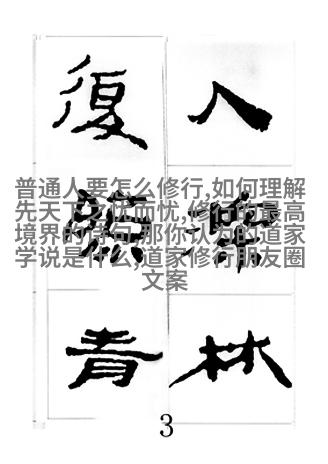 入深林
復照青
普通人要怎么修行,如何理解
先天下之忧而忧,修行的最高
境界的诗句,那你认为的道家
学说是什么,道家修行朋友圈
文案
3